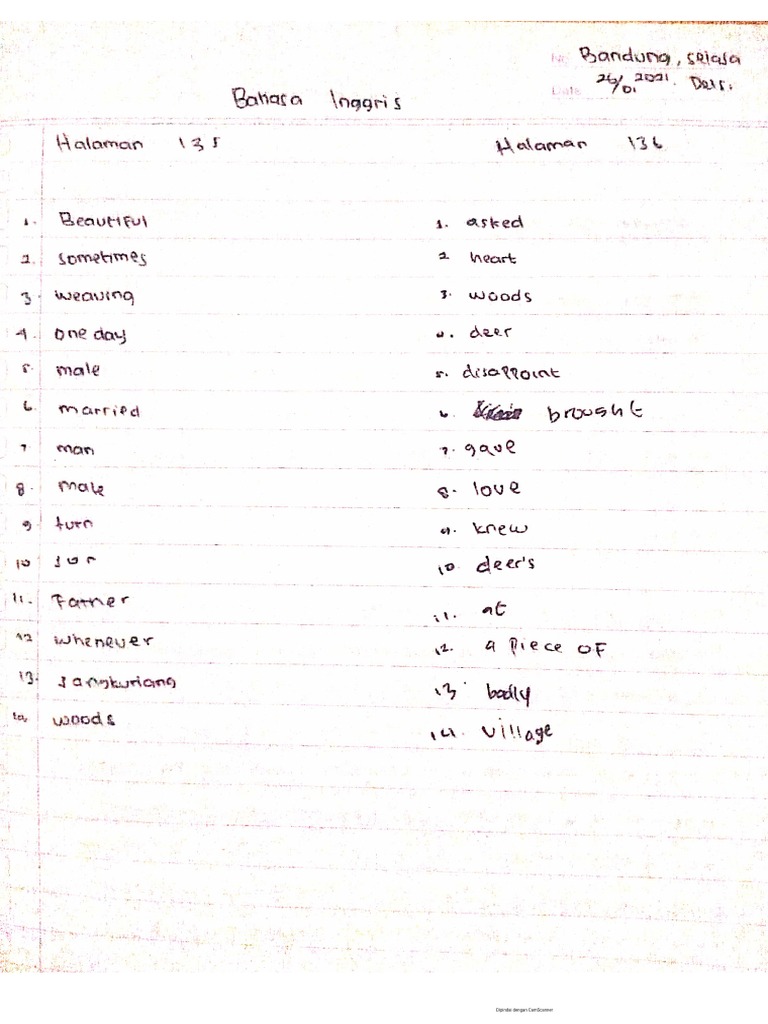 No: Bandung, selasa
Date: 26/01 2021. Dels.
Bahasa Inggris
Halaman 135
1. Beautiful
2. sometimes
3. weaving
4. one day
5. male
6. married
7. man
8. male
9. turn
10 son
11. Father
12 whenever
13. Sangkuriang
14. woods
Halaman 136
1. asked
2. heart
3. woods
4. deer
5. disappoint
6. brought
7. gave
8. love
9. knew
10. deer's
11. at
12. a piece of
13. badly
14. village
Dipindai dengan CamScanner